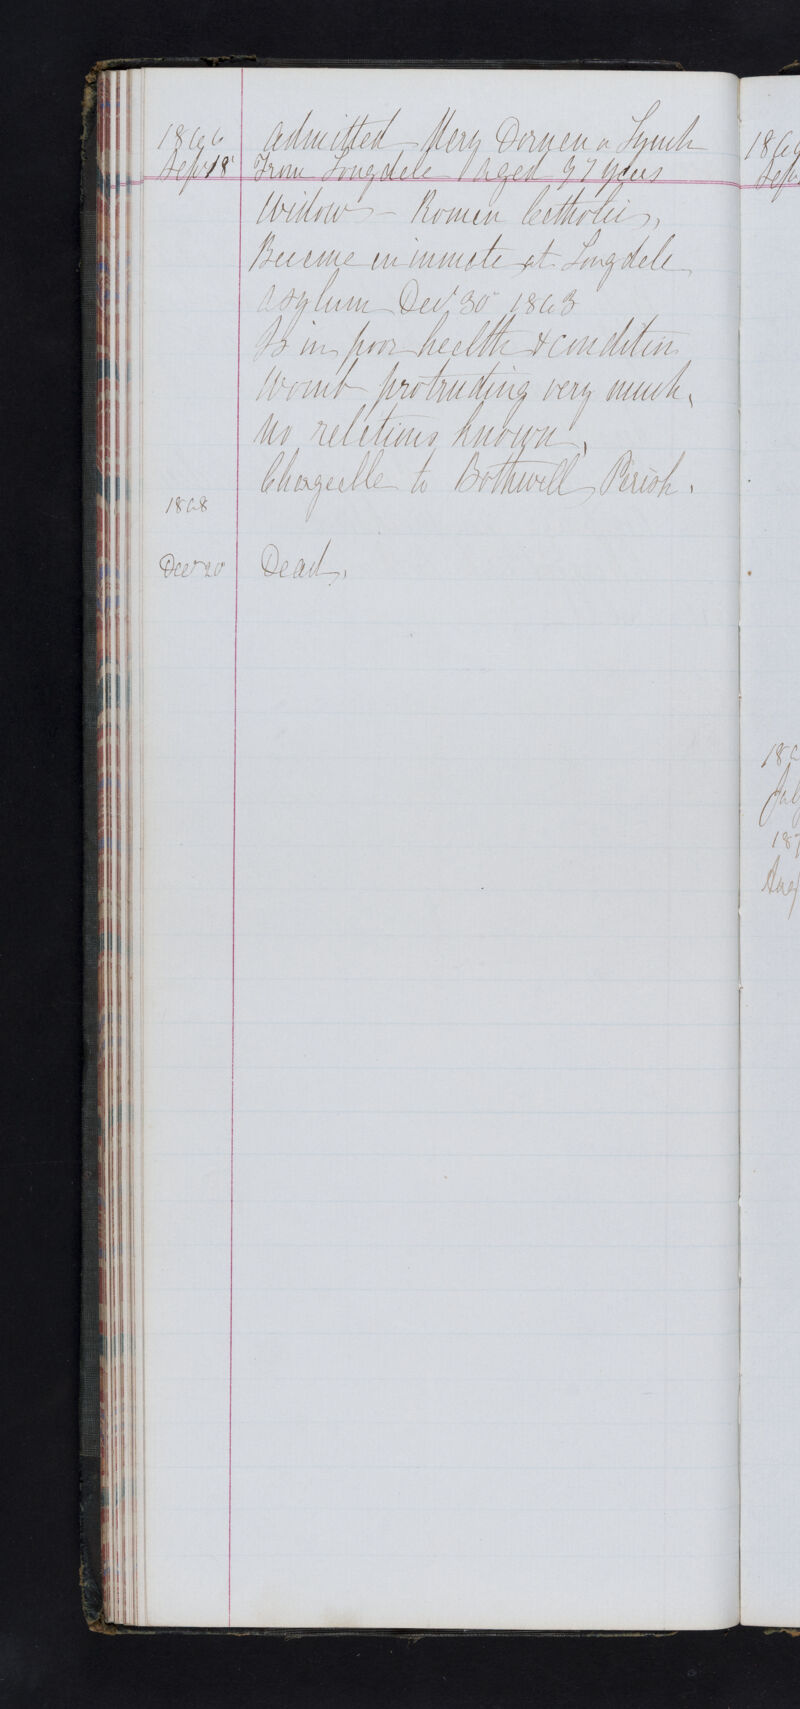 1866 Admitted Mary Dornen or Lynch
Sepr 18 From Longdale Aged 37 years
Widow - Roman Catholic,
Became an inmate at Longdale
Asylum Decr 30th 1863
Is in poor health & condition
Womb protruding very much,
No relations known,
Chargeable to Bothwell Parish.
1868
Decr 20 Dead,